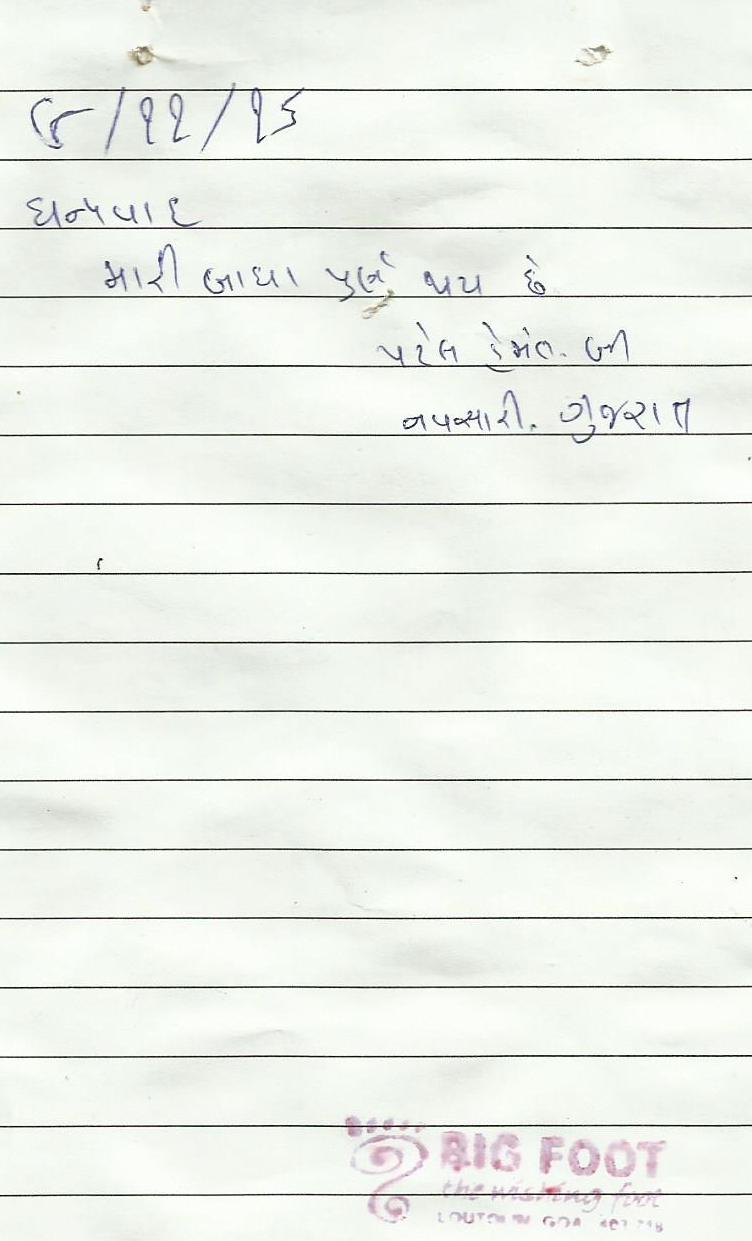 ૬/૧૧/૧૩
ધન્યવાદ
મારી બાધા પુર્ણ થાય છે.
પટેલ હેમંત. બી
નવસારી. ગુજરાત
BIG FOOT
the wishing foot
LOUTOLIM GOA 403 718